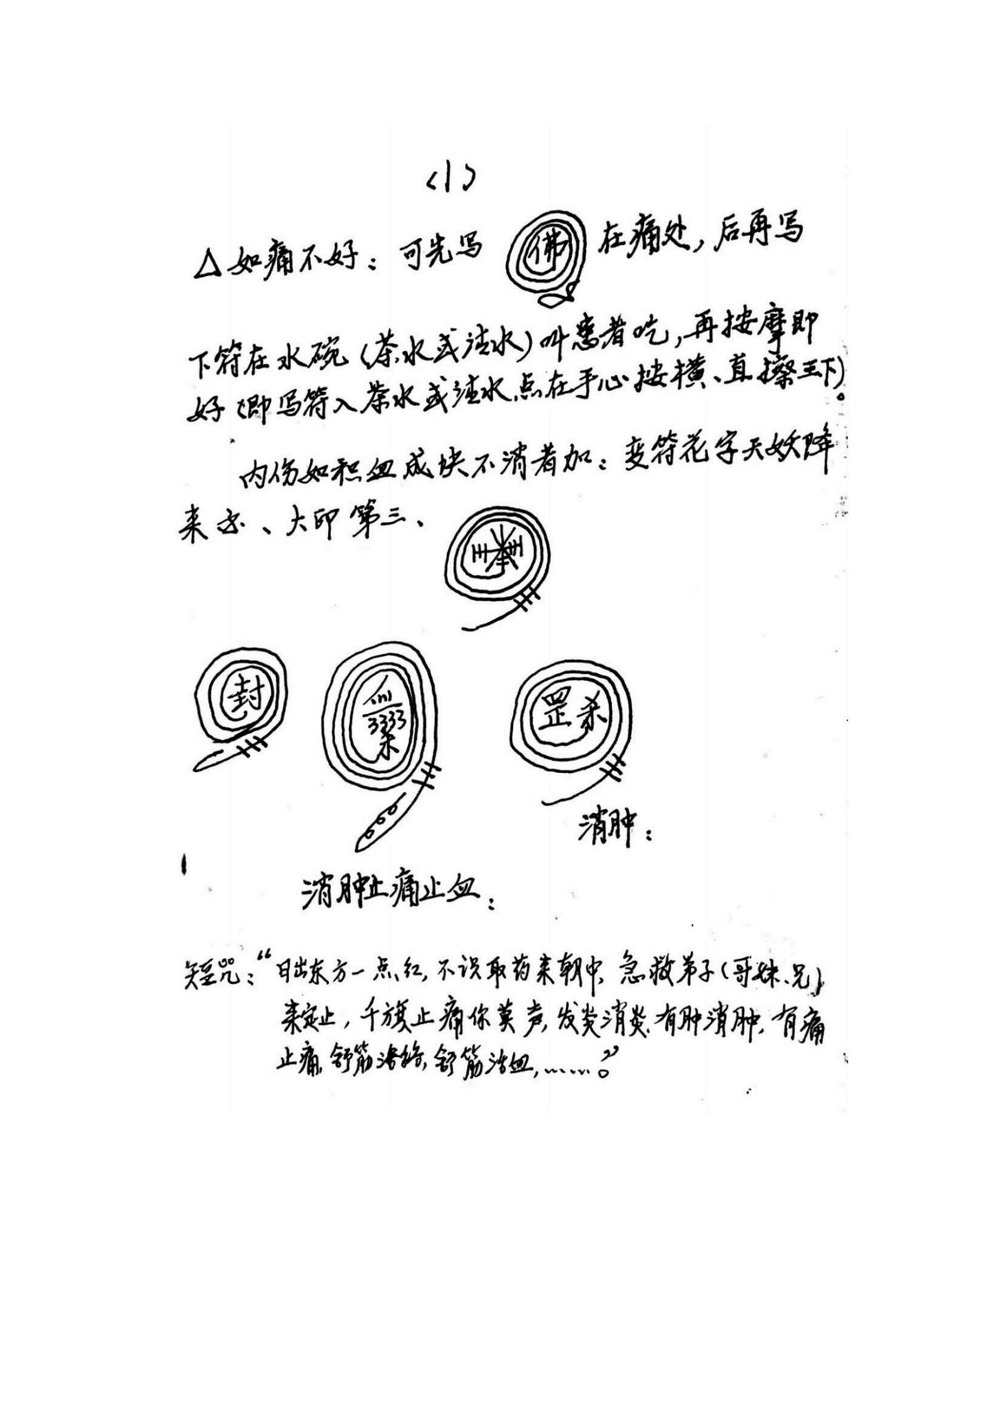 <1>
△如痛不好：可先写 佛 在痛处，后再写
下符在水碗（茶水或法水）叫患者吃，再按摩即
好（即写符入茶水或法水点在手心按横、直擦三下）。
内伤如积血成块不消者加：变符花字天妖降
来、大印第三、
封
罡 杀
消肿：
消肿止痛止血：
短咒：“日出东方一点红，不识取药来朝中，急救弟子（哥妹、兄）
来定止，千旗止痛你莫声，发炎消炎，有肿消肿，有痛
止痛，舒筋活络，舒筋活血，……”。